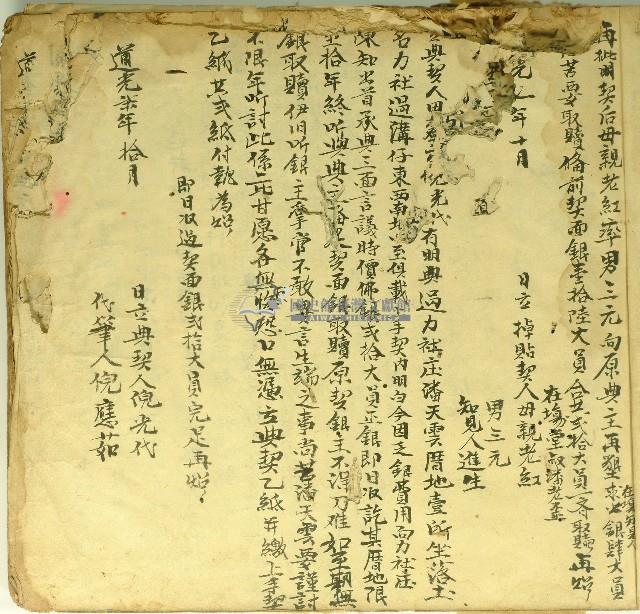 再批明契后母親老紅率男三元向原典主再墾求出銀肆大員
若要取贖備前契面銀壹拾陸大員合共弍拾大員一齊取贖再炤
在塲堂叔潘老孟
光 年十月
日立掉貼契人母親老紅
男三元
知見人進生
典契人 倪光代有明典過力社庄潘天雲厝地壹所坐落土
名力社過溝仔東西南北四至俱載上手契內明白今因乏銀費用向力社庄
陳知出首承典三面言議時價佛銀弍拾大員正銀即日收訖其厝地限
至拾年終听典 契面銀取贖原契銀主不得刁难如至期無
銀取贖伊旧听銀主掌管不敢異言生端之事尚若潘天雲要謹討
不限年听討此係二比甘愿各無怀怨口無憑立典契乙紙并繳上手契
乙紙共弍紙付執為炤
即日收過契面銀弍拾大員完足再炤
道光柒年拾月
日立典契人倪光代
代筆人倪應茹
道
國史館臺灣文獻館
TAIWAN HISTORICA